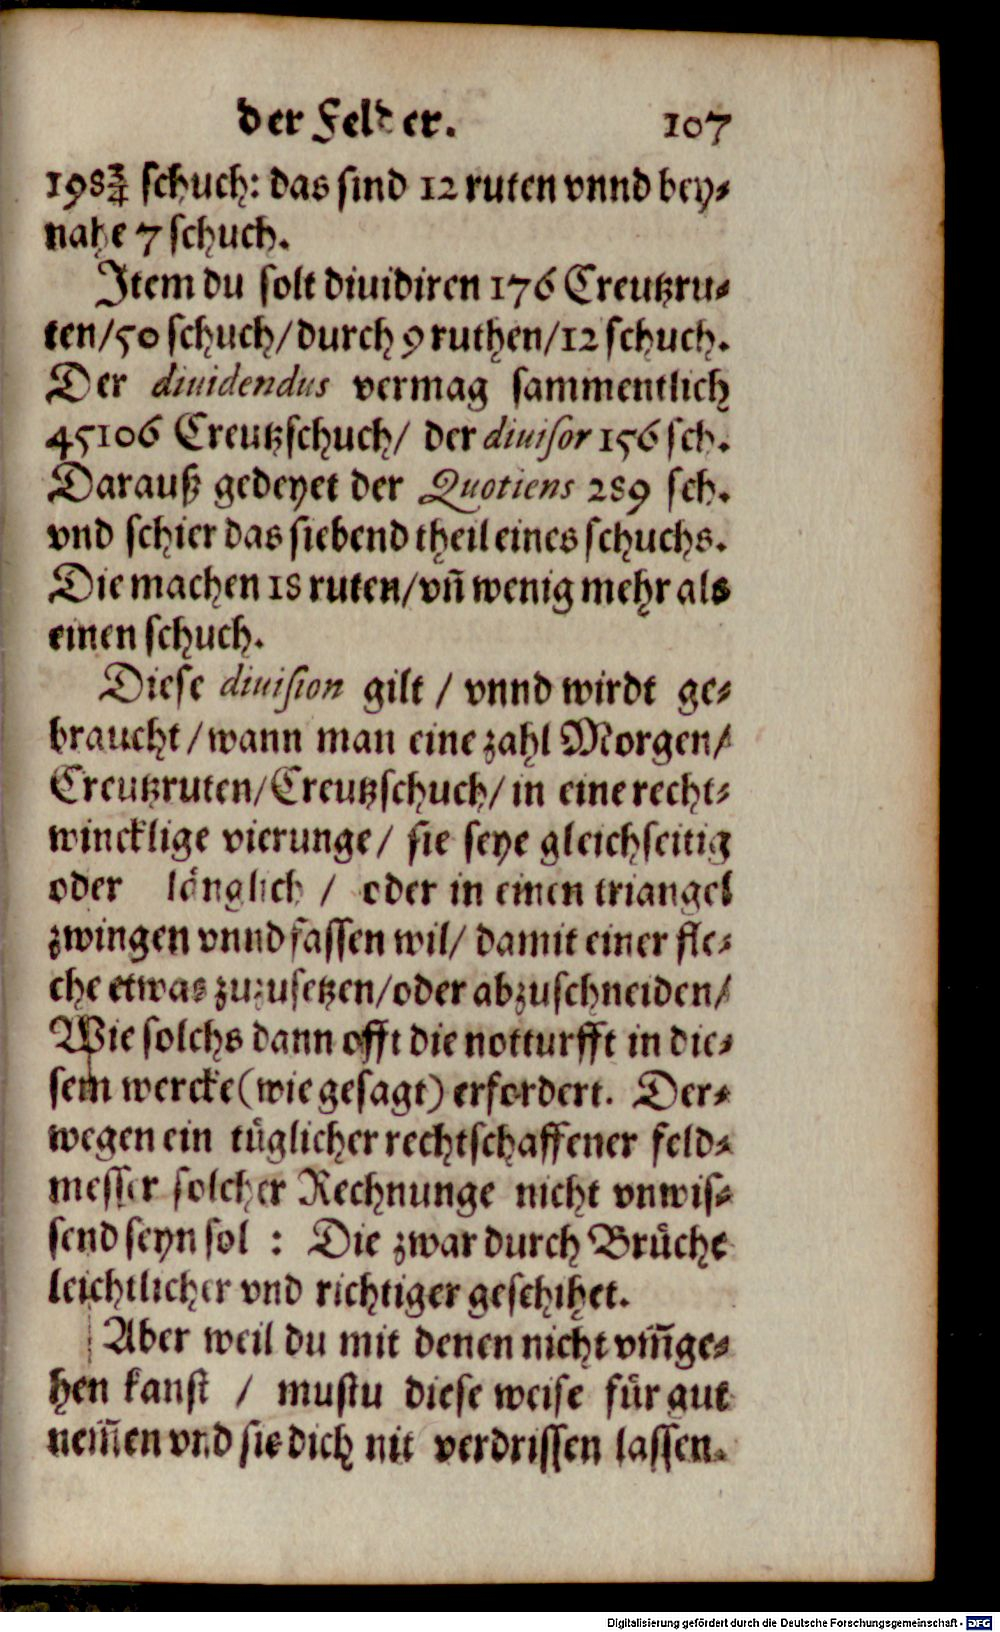 der Felder. 107
198¾ schuch: das sind 12 ruten vnnd bey-
nahe 7 schuch.
Item du solt diuidiren 176 Creutzru-
ten/50 schuch/durch 9 ruthen/12 schuch.
Der diuidendus vermag sammentlich
45106 Creutzschuch/ der diuisor 156 sch.
Darauß gedeyet der Quotiens 289 sch.
vnd schier das siebend theil eines schuchs.
Die machen 18 ruten/vn̄ wenig mehr als
einen schuch.
Diese diuision gilt / vnnd wirdt ge-
braucht/wann man eine zahl Morgen/
Creutzruten/Creutzschuch/in eine recht-
wincklige vierunge/ sie seye gleichseitig
oder långlich / oder in einen triangel
zwingen vnnd fassen wil/ damit einer fle-
che etwas zuzusetzen/oder abzuschneiden/
Wie solchs dann offt die notturfft in die-
sem wercke(wie gesagt) erfordert. Der-
wegen ein tůglicher rechtschaffener feld-
messer solcher Rechnunge nicht vnwis-
send seyn sol : Die zwar durch Brůche
leichtlicher vnd richtiger geschihet.
Aber weil du mit denen nicht vm̄ge-
hen kanst / mustu diese weise für gut
nem̄en vnd sie dich nit verdrissen lassen.
Digitalisierung gefördert durch die Deutsche Forschungsgemeinschaft - DFG